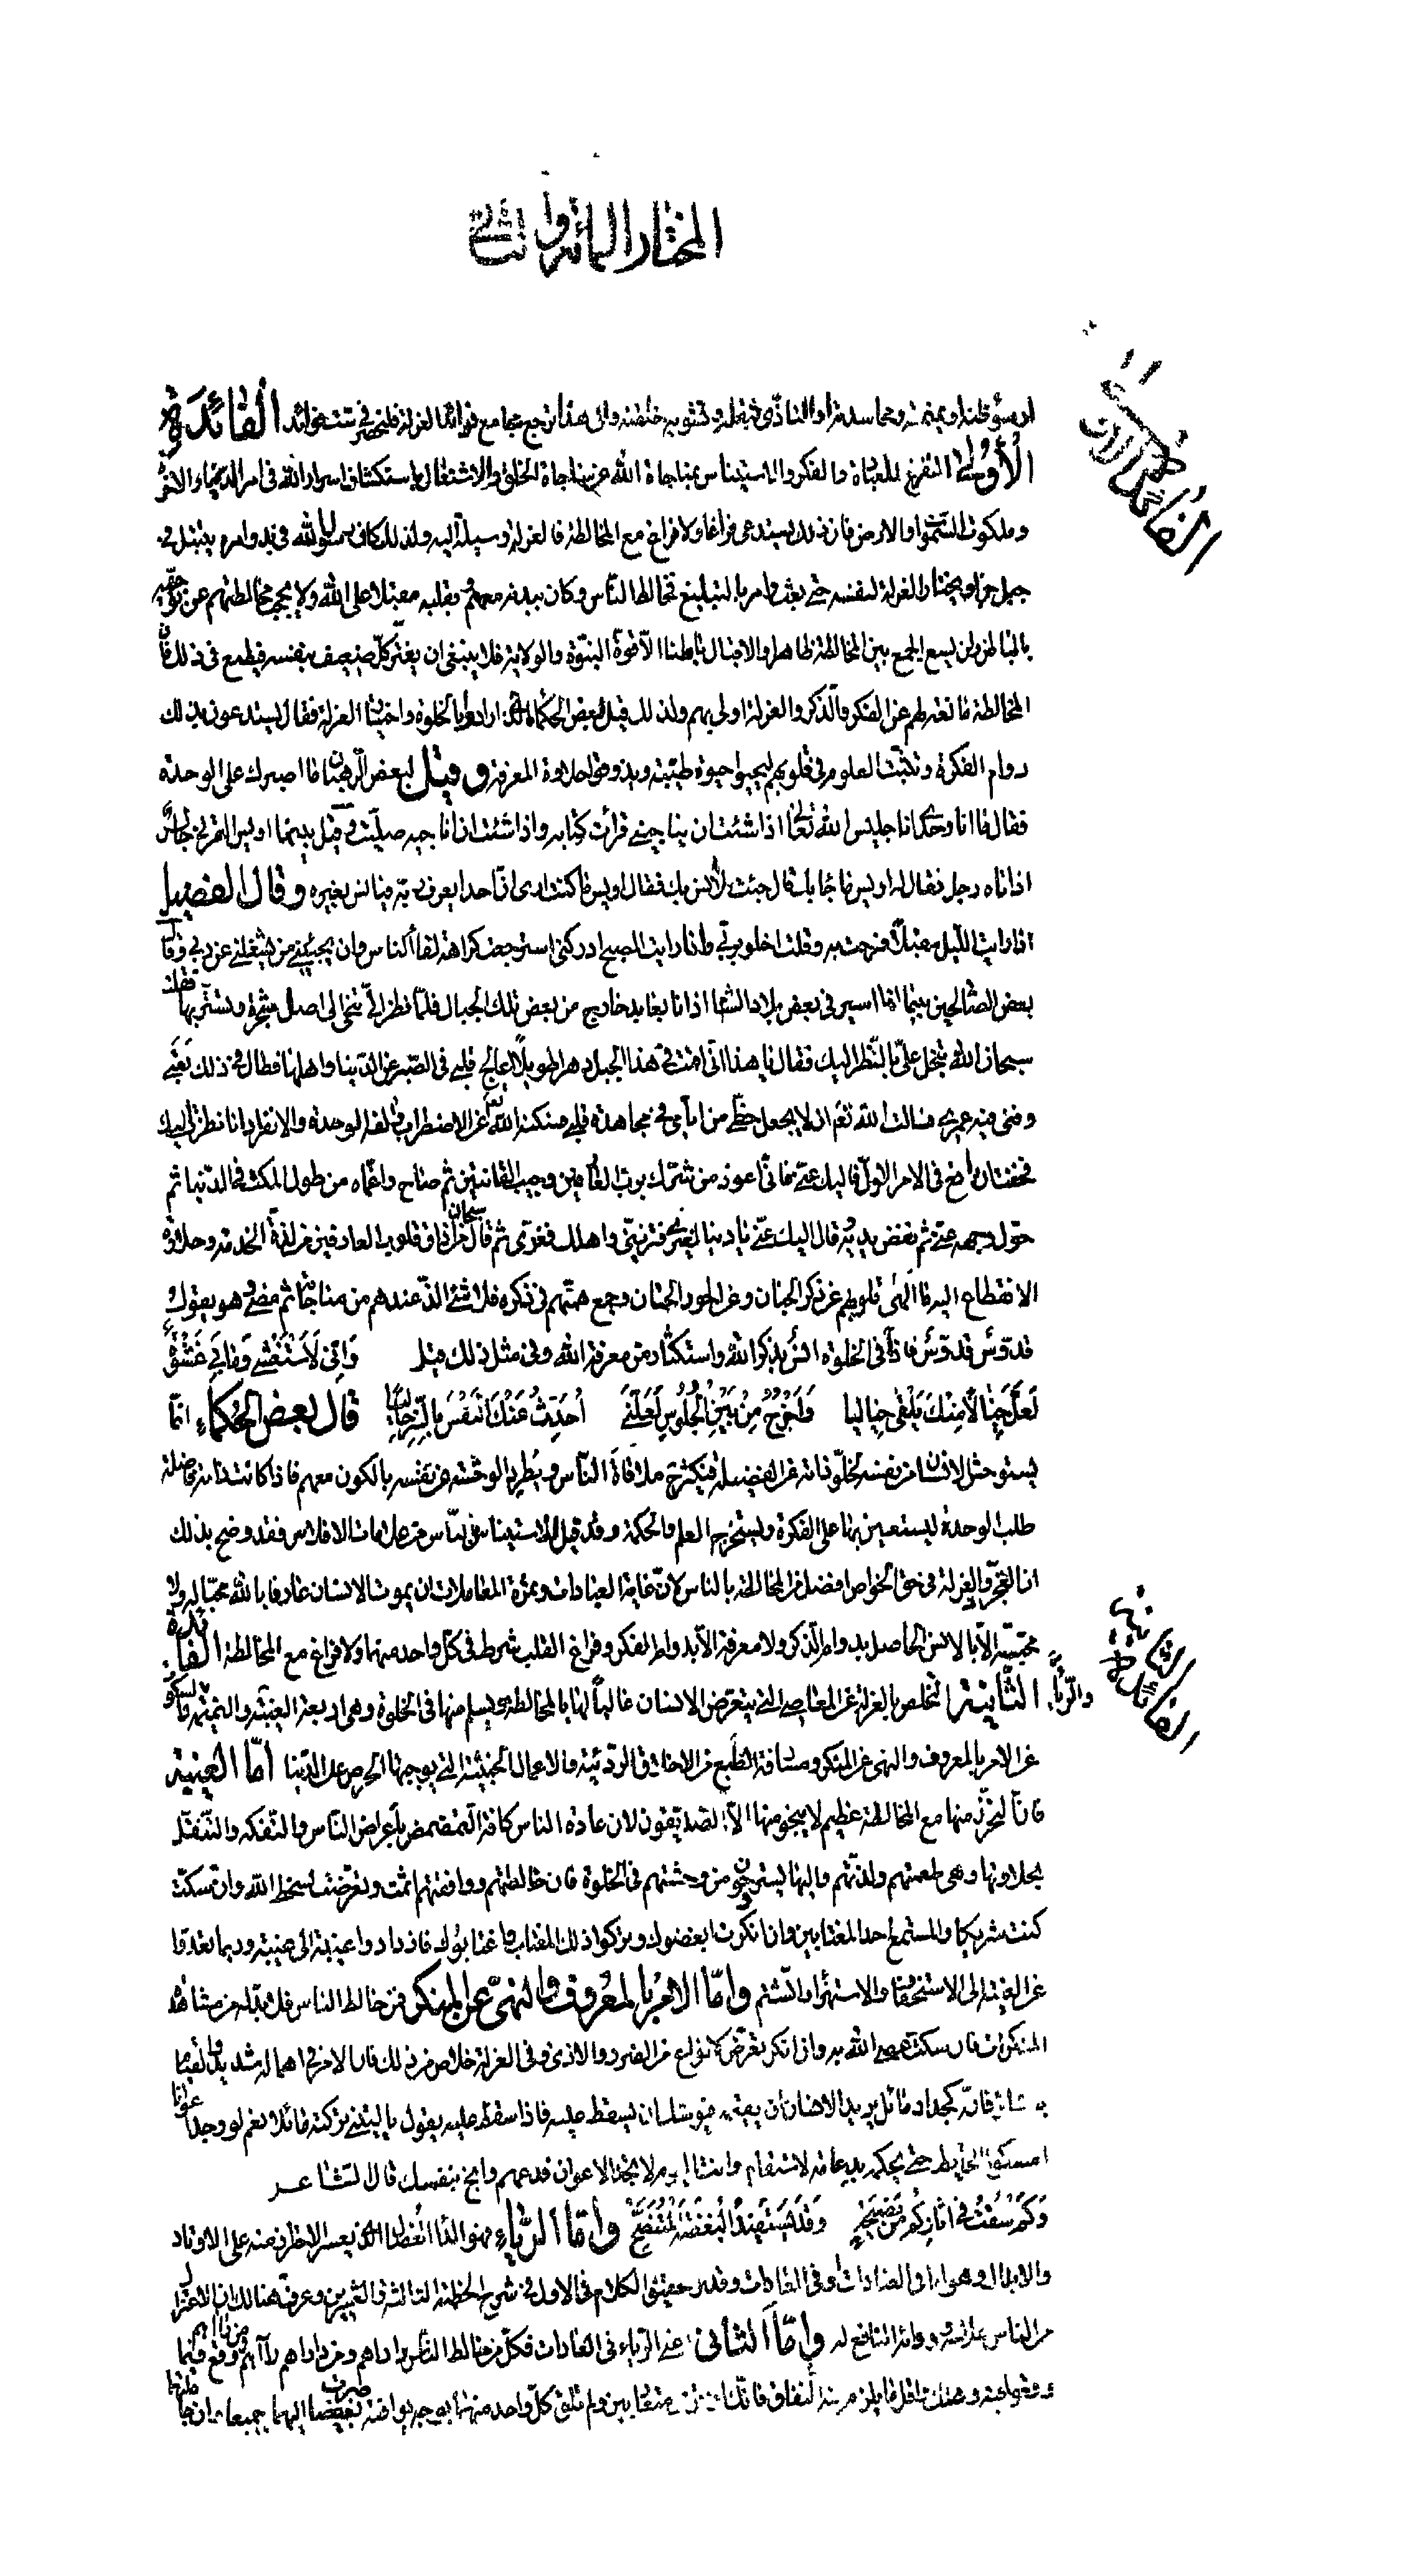 المختار المائة والثاني
الفائدة الاولى
او سوء ظنه او نميمته ومحاسدته او التأذى بثقله وتشويه خلقته والى هذا ترجع مجامع فوائد العزلة فلنحصر فى ستة فوائد الفائدة
الأولى التفرغ للعبادة والفكر والاستيناس بمناجاة الله عن مناجاة الخلق والاشتغال باستكشاف اسرار الله فى امر الدنيا والاخرة
وملكوت السموات والارض فان ذلك يستدعى فراغا ولا فراغ مع المخالطة فالعزلة وسيلة اليه ولذلك كان رسول الله فى بدو امره يتبتل فى
جبل حراء ويختار العزلة لنفسه حتى بعث وامر بالتبليغ فخالط الناس وكان ببدنه معهم وبقلبه مقبلا على الله ولا يحجبه مخالطتهم عن توجهه
بالباطن ولن يسع الجمع بين المخالطة ظاهرا والاقبال باطنا الا قوة النبوة والولاية فلا ينبغى ان يغتر كل ضعيف بنفسه فيطمع فى ذلك فان
المخالطة مانعة لهم عن الفكر والذكر والعزلة اولى بهم ولذلك قيل لبعض الحكماء ما الذى ارادوا بالخلوة واختيار العزلة فقال يستدعون بذلك
دوام الفكرة وتثبت العلوم فى قلوبهم ليحيوا حيوة طيبة ويذوقوا حلاوة المعرفة وقيل لبعض الرهبان ما اصبرك على الوحدة
فقال ما انا وحدى انا جليس الله تعالى اذا شئت ان يناجينى قرأت كتابه واذا شئت ان اناجيه صليت وقيل بينما اويس القرنى جالس
اذ اتاه رجل فقال له اويس ما جاء بك قال جئت لآنس بك فقال اويس ما كنت ارى ان احدا يعرف ربه فيانس بغيره وقال الفضيل
اذا رايت الليل مقبلا فرحت به وقلت اخلو بربى واذا رايت الصبح ادركنى استرجعت كراهة لقاء الناس وان يجيئنى من يشغلنى عن ربى وقال
بعض الصالحين بينما انا اسير فى بعض بلاد الشام اذ انا بعابد خارج من بعض تلك الجبال فلما نظر الى تنحى الى اصل شجرة وتستر بها فقلت
سبحان الله تبخل على بالنظر اليك فقال يا هذا انى اقمت فى هذا الجبل دهرا طويلا اعالج قلبى فى الصبر عن الدنيا واهلها فطال فى ذلك تعبى
وفنى فيه عمرى فسالت الله تعم ان لا يجعل حظى من ايامى فى مجاهدة قلبى فسكنه الله تعم عن الاضطراب والفه الوحدة والانفراد فلما نظرت اليك
فخفت ان اقع فى الامر الاول فاليك عنى فانى اعوذ من شرك برب العارفين وحبيب القانتين ثم صاح واغماه من طول المكث فى الدنيا ثم
حول وجهه عنى ثم نفض يديه وقال اليك عنى يا دنيا لغيرى فتزينى واهلك فغرى ثم قال سبحان من اذاق قلوب العارفين من لذة الخدمة وحلاوة
الانقطاع اليه ما الهى قلوبهم عن ذكر الجنان وعن الحور الحسان وجمع همتهم فى ذكره فلا شىء الذ عندهم من مناجاته ثم مضى وهو يقول
قدوس قدوس فاذا فى الخلوة انس بذكر الله واستكثار من معرفة الله وفى مثل ذلك قيل وَاِنّى لَاَسْتَغْشى وَمَا بى غَشْوَةٌ
لَعَلَّ خَيالًا مِنْكَ يَلْقى خياليا وَاَخْرُجُ مِنْ بَيْنِ الْجُلُوسِ لَعَلَّنى اُحَدِّثُ عَنْكَ النَفْسَ بِالسِّرِ خاليا قال بعض الحكماء انما
يستوحش الانسان من نفسه لخلو ذاته عن الفضيلة فيكثر ملاقاة الناس ويطرد الوحشة عن نفسه بالكون معهم فاذا كانت ذاته فاضلة
طلب الوحدة ليستعين بها على الفكرة ويستخرج العلم والحكمة وقد قيل الاستيناس بالناس من علامات الافلاس فقد وضح بذلك
ان التجرد والعزلة فى حق الخواص افضل من المخالطة بالناس لان غاية العبادات وثمرة المعاملات ان يموت الانسان عارفا بالله محبا له ولا
محبته الا بالانس الحاصل بدوام الذكر ولا معرفة الا بدوام الفكر وفراغ القلب شرط فى كل واحد منهما ولا فراغ مع المخالطة الفائدة
الثانية التخلص بالعزلة عن المعاصى التى يتعرض الانسان غالبا لها بالمخالطة ويسلم منها فى الخلوة وهى اربعة الغيبة والنميمة والرياء والسكوت
الفائدة الثانية
عن الامر بالمعروف والنهى عن المنكر ومسارقة الطبع من الاخلاق الردئية والاعمال الخبيثة التى يوجبها الحرص على الدنيا اما الغيبة
فان التحرز منها مع المخالطة عظيم لا ينجو منها الا الصديقون لان عادة الناس كافة التمضمض باعراض الناس والتفكه والتنقل
بحلاوتها وهى طعمتهم ولذتهم واليها يستروحون من وحشتهم فى الخلوة فان خالطتهم ووافقتهم اثمت وتعرضت لسخط الله وان سكت
كنت شريكا والمستمع احد المغتابين وان انكرت ابغضوك وتركوا ذلك المغتاب واغتابوك فازدادوا غيبة الى غيبة وربما تعدوا
عن الغيبة الى الاستخفاف والاستهزاء والشتم واما الامر بالمعروف والنهى عن المنكر فمن خالط الناس فلا بد له من مشاهدة
المنكرات فان سكت عصى الله به وان انكر تعرض لانواع من الضرر والاذى وفى العزلة خلاص من ذلك فان الامر فى اهماله شديد والقيام
به شاق فانه كجدار مائل يريد الانسان ان يقيمه فيوشك ان يسقط عليه فاذا سقط عليه يقول يا ليتنى تركته مائلا نعم لو وجد اعوانا
امسكوا الحايط حتى يحكمه بدعامة لاستقام وانت اليوم لا تجد الاعوان فدعهم وانج بنفسك قال الشاعر
وَكَمْ سُقْتُ فى اثارِكُمْ مِنْ نَصيحَةٍ وَقَدْ يَسْتَفيدُ الْبِغْضَةَ الْمُتَنَصِّحُ واما الرياء فهو الداء العضال الذى يعسر الاحتراز منه على الاوتاد
والابدال وهو اما فى العبادات او فى العادات وقد مر تحقيق الكلام فى الاول فى شرح الخطبة الثالثة والعشرين وعرفت هنالك ان الاعتزال
من الناس علاقة ودوائر النافع له واما الثانى اعنى الرياء فى العادات فكل من خالط الناس داراهم ومن داراهم راآهم ومن راآهم وقع فيما
وقعوا فيه وهلك واقل ما يلزم منه النفاق فانك ان خالطت متعاديين ولم تلق كل واحد منهما بوجه يوافقه صرت بغيضا اليهما جميعا وان جاملتهما